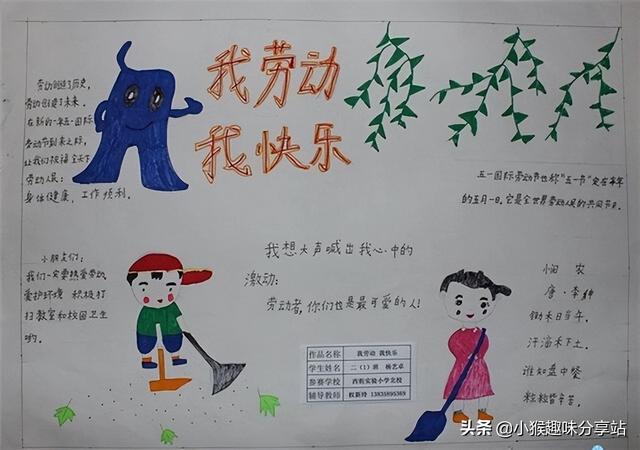 我劳动
我快乐
劳动创造了历史,
劳动创造了未来.
在新的一年五一国际
劳动节到来之际,
让我们祝福全天下
劳动人民:
身体健康, 工作顺利.
五一国际劳动节也称"五一节"定在每年
的五月一日.它是全世界劳动人民的共同节日.
小朋友们:
我们一定要热爱劳动,
爱护环境 积极打
扫教室和校园卫生
哟。
我想大声喊出我心中的
激动:
劳动者,你们也是最可爱的人!
悯 农
唐·李绅
锄禾日当午,
汗滴禾下土.
谁知盘中餐
粒粒皆辛苦.
作品名称 我劳动 我快乐
学生姓名 二(1)班 杨艺卓
参赛学校 西街实验小学北校
辅导教师 权新玲 13835895369
头条 @小猴趣味分享站